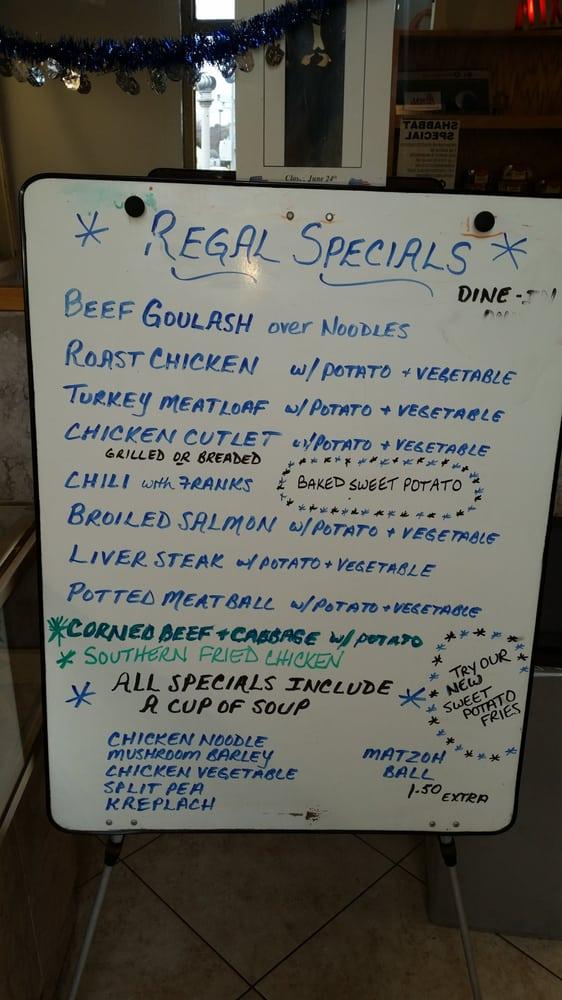 SHABBAT
SPECIAL
June 24th
* REGAL SPECIALS *
DINE-IN
BEEF GOULASH over NOODLES
ROAST CHICKEN w/ POTATO + VEGETABLE
TURKEY MEATLOAF w/ POTATO + VEGETABLE
CHICKEN CUTLET w/ POTATO + VEGETABLE
GRILLED OR BREADED
CHILI with FRANKS
BAKED SWEET POTATO
BROILED SALMON w/ POTATO + VEGETABLE
LIVER STEAK w/ POTATO + VEGETABLE
POTTED MEATBALL w/ POTATO + VEGETABLE
* CORNED BEEF + CABBAGE w/ POTATO
* SOUTHERN FRIED CHICKEN
TRY OUR
NEW
SWEET
POTATO
FRIES
* ALL SPECIALS INCLUDE *
A CUP OF SOUP
CHICKEN NOODLE
MUSHROOM BARLEY
CHICKEN VEGETABLE
SPLIT PEA
KREPLACH
MATZOH
BALL
1.50 EXTRA